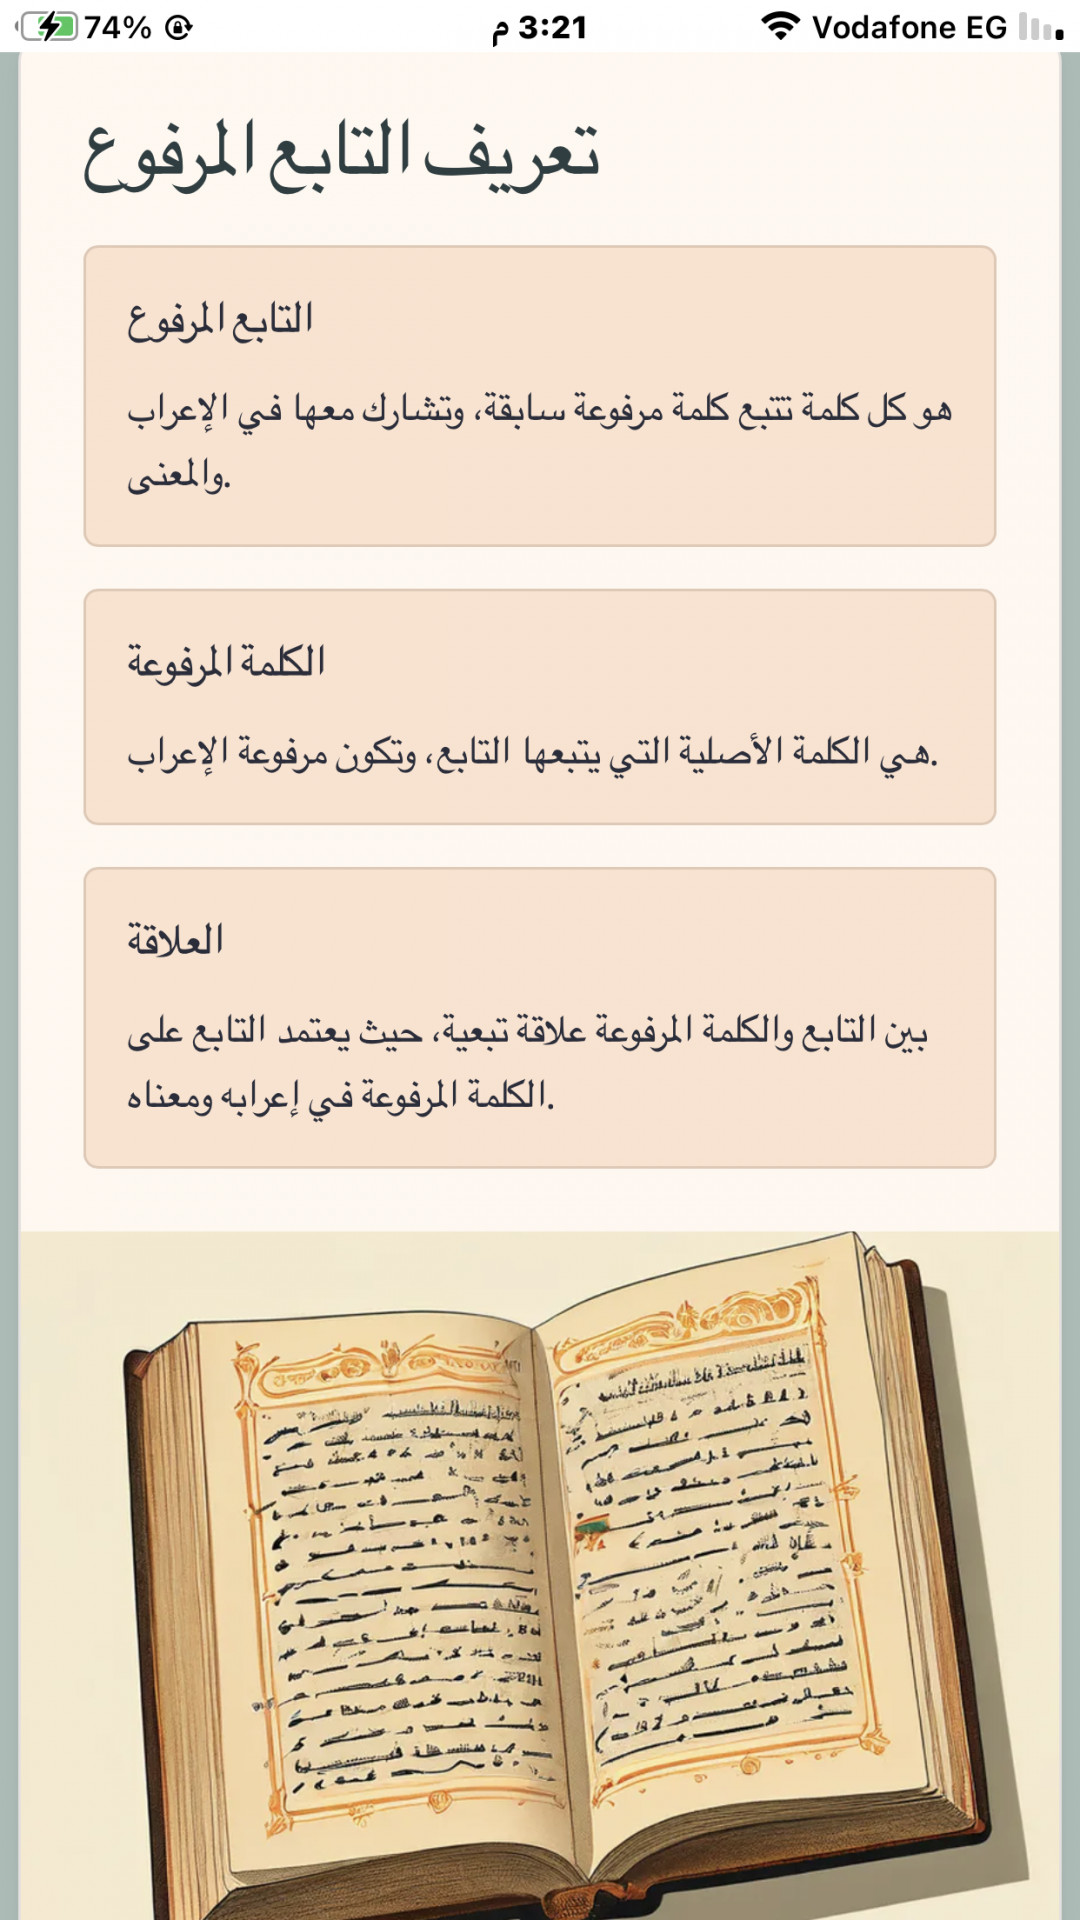 74%
3:21 م
Vodafone EG
تعريف التابع المرفوع
التابع المرفوع
هو كل كلمة تتبع كلمة مرفوعة سابقة، وتشارك معها في الإعراب
والمعنى.
الكلمة المرفوعة
هي الكلمة الأصلية التي يتبعها التابع، وتكون مرفوعة الإعراب.
العلاقة
بين التابع والكلمة المرفوعة علاقة تبعية، حيث يعتمد التابع على
الكلمة المرفوعة في إعرابه ومعناه.